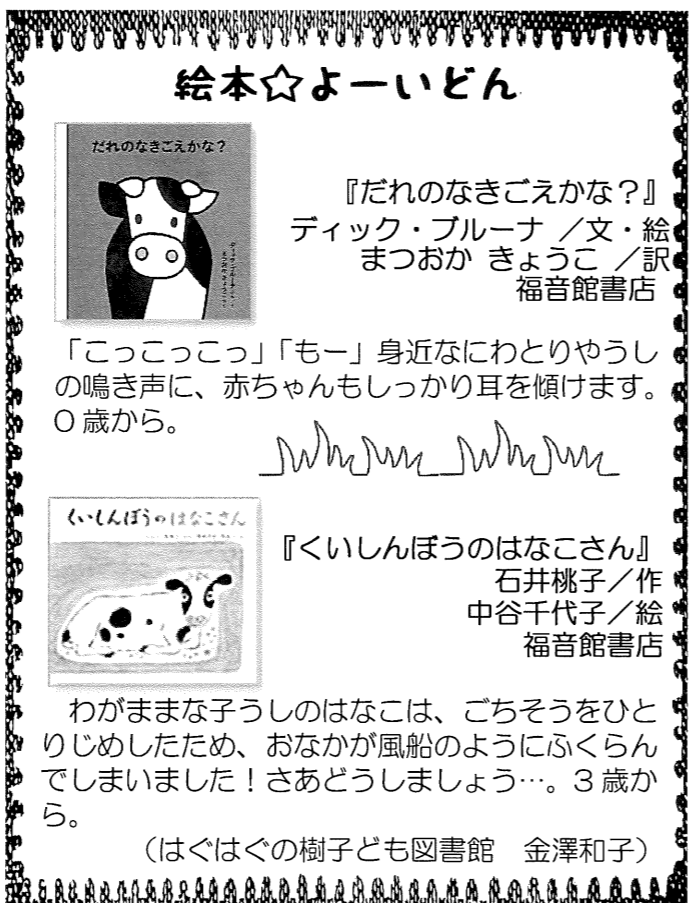 絵本☆よーいどん
だれのなきごえかな？
『だれのなきごえかな？』
ディック・ブルーナ ／文・絵
まつおか きょうこ ／訳
福音館書店
「こっこっこっ」「もー」身近なにわとりやうし
の鳴き声に、赤ちゃんもしっかり耳を傾けます。
０歳から。
くいしんぼうのはなこさん
『くいしんぼうのはなこさん』
石井桃子／作
中谷千代子／絵
福音館書店
わがままな子うしのはなこは、ごちそうをひと
りじめしたため、おなかが風船のようにふくらん
でしまいました！さあどうしましょう…。３歳か
ら。
（はぐはぐの樹子ども図書館　金澤和子）